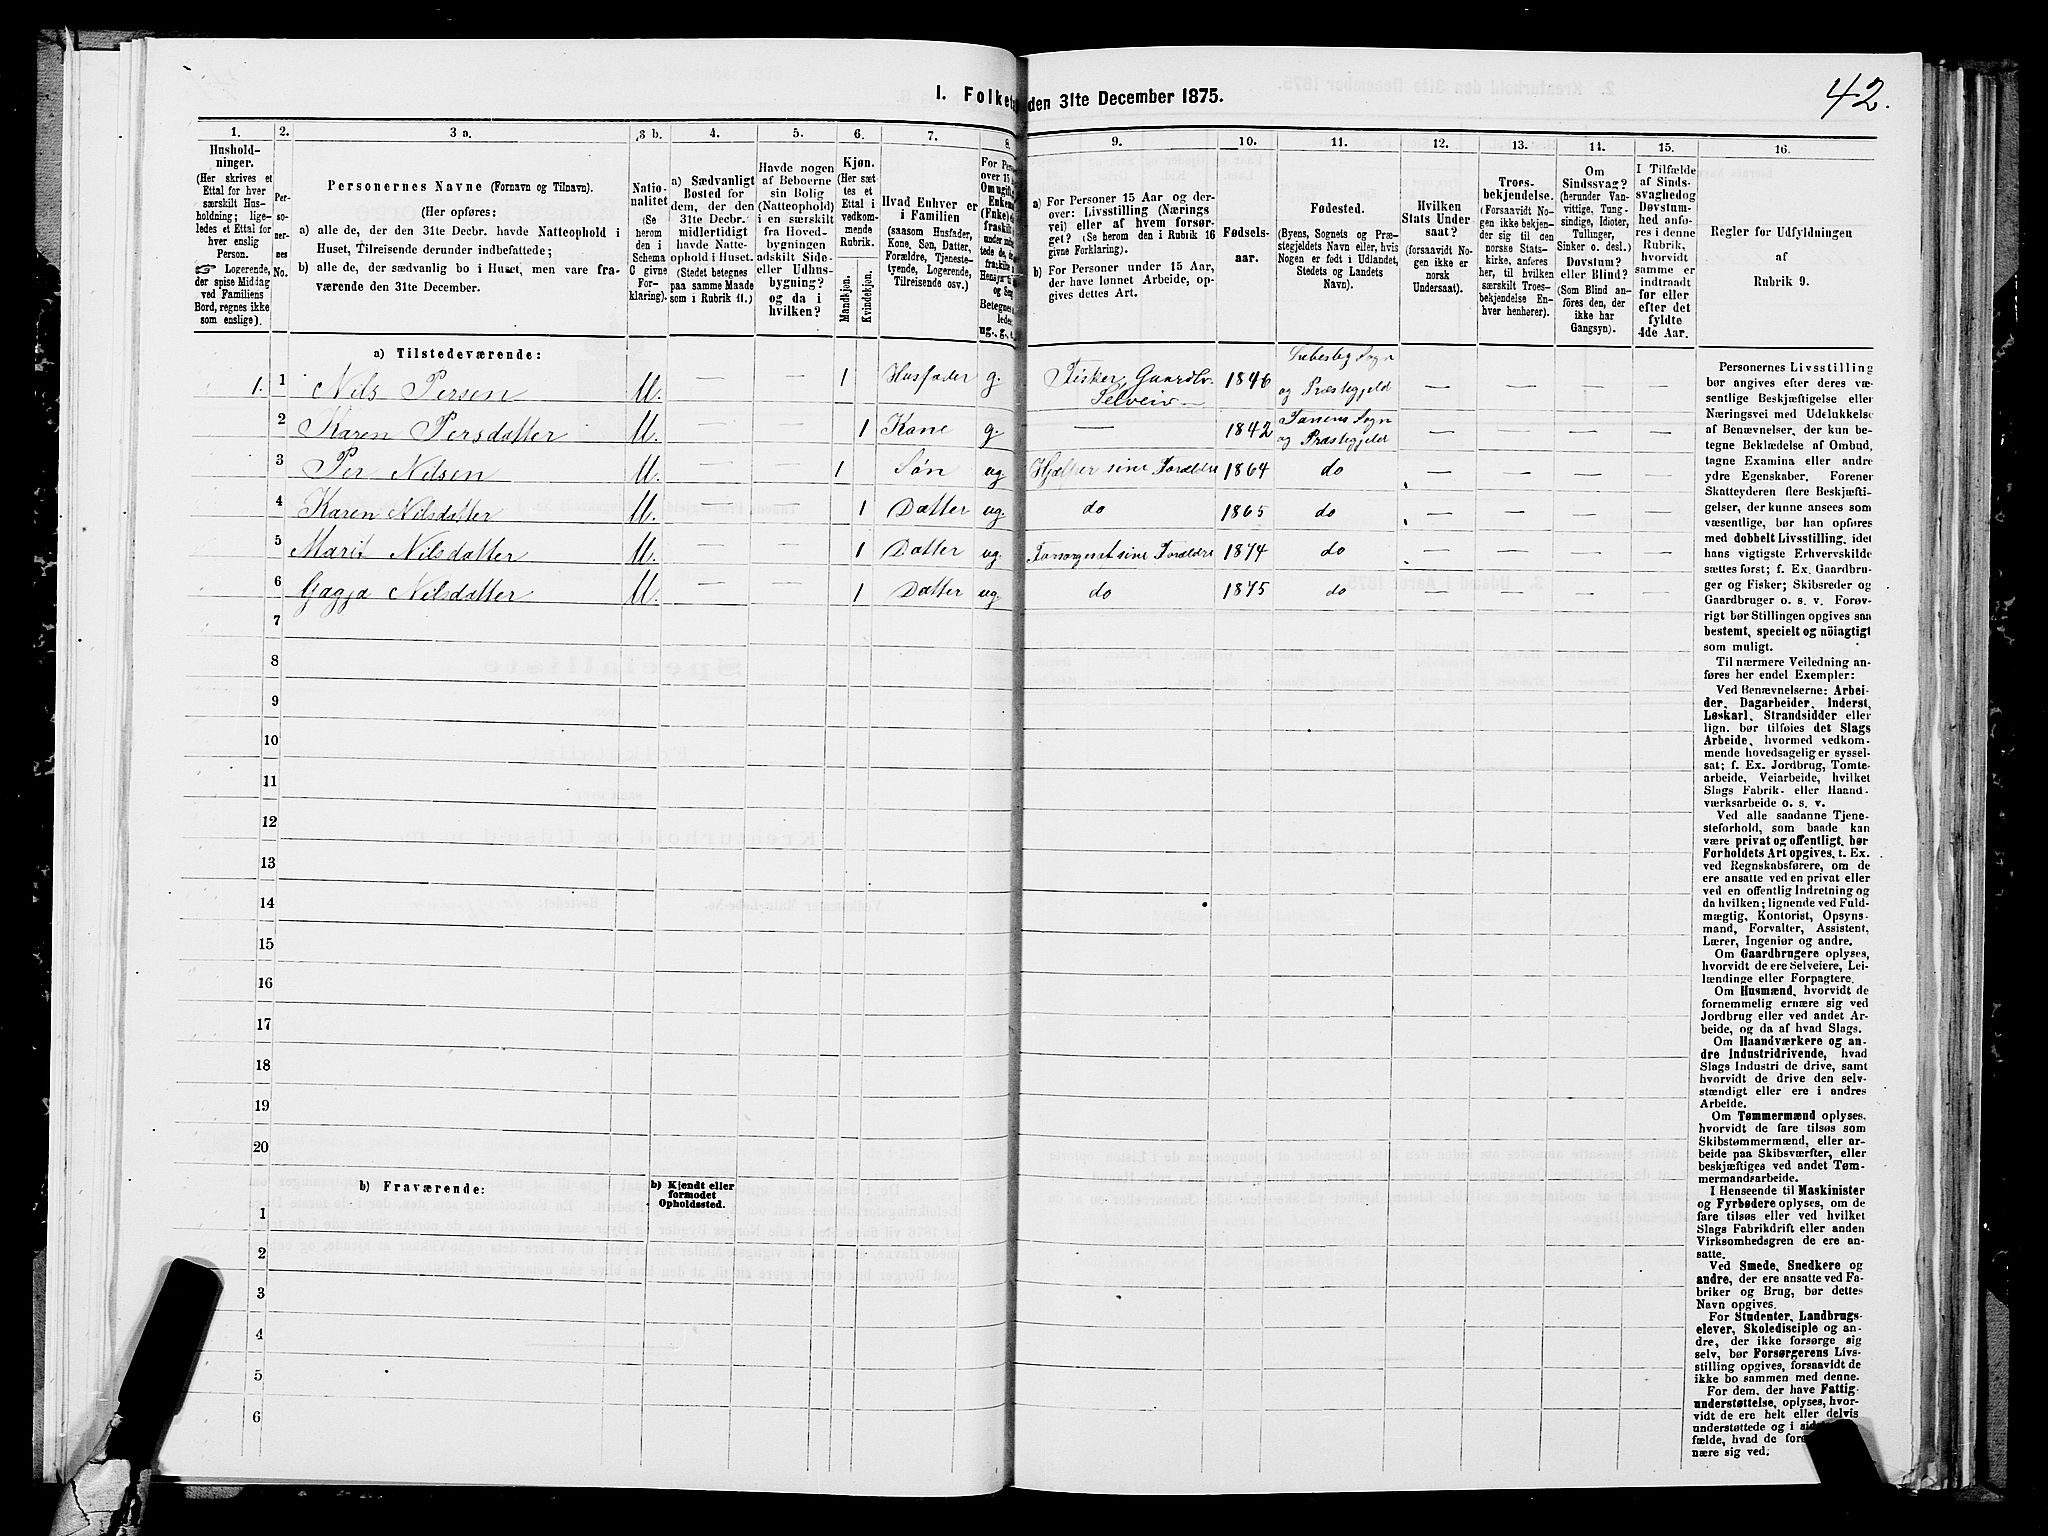 I. Folket den 31te December 1875.
42.
1.
Hushold-
ninger.
(Her skrives et
Ettal for hver
særskilt Hus-
holdning; lige-
ledes et Ettal for
hver enslig
Person.
☞ Logerende,
der spise Middag
ved Familiens
Bord, regnes ikke
som enslige).
2.
Per-
so-
ner-
nes
No.
3 a.
Personernes Navne (Fornavn og Tilnavn).
(Her opføres:
a) alle de, der den 31te Decbr. havde Natteophold i
Huset, Tilreisende derunder indbefattede;
b) alle de, der sædvanlig bo i Huset, men vare fra-
værende den 31te December.
3 b.
Natio-
nalitet
(Se
herom
den i
Schema
C givne
For-
klaring).
4.
a) Sædvanligt
Bosted for
dem, der den
31te Decbr.
midlertidigt
havde Natte-
ophold i Huset.
(Stedet betegnes
paa samme Maade
som i Rubrik 11.)
5.
Havde nogen
af Beboerne
sin Bolig
(Natteophold)
i en særskilt
fra Hoved-
bygningen
adskilt Side-
eller Udhus-
bygning?
og da i
hvilken?
6.
Kjøn.
(Her sæt-
tes et
Ettal i
vedkom-
mende
Rubrik.
Mandkjøn.
Kvindekjøn.
7.
Hvad Enhver er
i Familien
(saasom Husfader,
Kone, Søn, Datter,
Forældre, Tjeneste-
tyende, Logerende,
Tilreisende osv.)
8.
For Pers
over 15 A
Om ugift,
Enkem
(Fnke) e
fraskilt
Betegnes
ledes
ug., g.,
9.
a) For Personer 15 Aar og der-
over: Livsstilling (Nærings
vei) eller af hvem forsør-
get? (Se herom den i Rubrik 16
givne Forklaring).
b) For Personer under 15 Aar,
der have lønnet Arbeide, op-
gives dettes Art.
10.
Fødsels-
aar.
11.
Fødested.
(Byens, Sognets og Præ-
stegjeldets Navn eller, hvis
Nogen er født i Udlandet,
Stedets og Landets
Navn).
12.
Hvilken
Stats Under-
saat?
(forsaavidt No-
gen ikke er
norsk
Undersaat).
13.
Troes-
bekjendelse.
(Forsaavidt No-
gen ikke bekjen-
der sig til den
norske Stats-
kirke, anføres
her, til hvilken
særskilt Troes-
bekjendelse En-
hver henhører).
14.
Om
Sindssvag?
(herunder Van-
vittige, Tung-
sindige, Idioter,
Tullinger,
Sinker o. desl.)
Døvstum?
eller Blind?
(Som Blind an-
føres den, der
ikke har
Gangsyn).
15.
I Tilfælde
af Sinds-
svaghedog
Døvstum-
hed anfø-
res i denne
Rubrik,
hvorvidt
samme er
indtraadt
før eller
efter det
fyldte
4de Aar.
16.
Regler for Udfyldningen
af
Rubrik 9.
a) Tilstedeværende:
1. 1 Nils Persen M. — — 1 Husfader g. Fisker, Gaardbr. Selveier 1846 Sogn og Præstegjeld — — — —
2 Karen Persdatter M. — — 1 Kone g. — 1842 Tanens Sogn og Præstegjeld — — — —
3 Per Nilsen M. — — 1 Søn ug Hjælper sine Forældre 1864 do — — — —
4 Karen Nilsdatter M. — — 1 Datter ug. do 1865 do — — — —
5 Marit Nilsdatter M. — — 1 Datter ug. Forsørges af sine Forældre 1874 do — — — —
6 Gagja Nilsdatter M. — — 1 Datter ug. do 1875 do — — — —
7
8
9
10
11
12
13
14
15
16
17
18
19
20
b) Fraværende:
b) Kjendt eller
formodet
Opholdssted.
1
2
3
4
5
6
Personernes Livsstilling
bør angives efter deres væ-
sentlige Beskjæftigelse eller
Næringsvei med Udelukkelse
af Benævnelser, der kun be-
tegne Beklædelse af Ombud,
tagne Examina eller andre
ydre Egenskaber. Forener
Skatteyderen flere Beskjæfti-
gelser, der kunne ansees som
væsentlige, bør han opføres
med dobbelt Livsstilling, idet
hans vigtigste Erhvervskilde
sættes først; f. Ex. Gaardbru-
ger og Fisker; Skibsreder og
Gaardbruger o. s. v. Forøv-
rigt bør Stillingen opgives saa
bestemt, specielt og nöiagtigt
som muligt.
Til nærmere Veiledning an-
føres her endel Exempler:
Ved Benævnelserne: Arbei-
der, Dagarbeider, Inderst,
Løskarl, Strandsidder eller
lign. bør tilføies det Slags
Arbeide, hvormed vedkom-
mende hovedsagelig er syssel-
sat; f. Ex. Jordbrug, Tomte-
arbeide, Veiarbeide, hvilket
Slags Fabrik- eller Haand-
værksarbeide o. s. v.
Ved alle saadanne Tjene-
steforhold, som baade kan
være privat og offentligt, bør
Forholdets Art opgives, t. Ex.
ved Regnskabsførere, om de
ere ansatte ved en privat eller
ved en offentlig Indretning og
da hvilken; lignende ved Fuld-
mægtig, Kontorist, Opsyns-
mand, Forvalter, Assistent,
Lærer, Ingeniør og andre.
Om Gaardbrugere oplyses,
hvorvidt de ere Selveiere, Lei-
lændinge eller Forpagtere.
Om Husmænd, hvorvidt de
fornemmelig ernære sig ved
Jordbrug eller ved andet Ar-
beide, og da af hvad Slags.
Om Haandværkere og an-
dre Industridrivende, hvad
Slags Industri de drive, samt
hvorvidt de drive den selv-
stændigt eller ere i andres
Arbeide.
Om Tømmermænd oplyses,
hvorvidt de fare tilsøs som
Skibstømmermænd, eller ar-
beide paa Skibsværfter, eller
beskjæftiges ved andet Tøm-
mermandsarbeide.
I Henseende til Maskinister
og Fyrbødere oplyses, om de
fare tilsøs eller ved hvilket
Slags Fabrikdrift eller anden
Virksomhedsgren de ere an-
satte.
Ved Smede, Snedkere og
andre, der ere ansatte ved Fa-
briker og Brug, bør dettes
Navn opgives.
For Studenter, Landbrugs-
elever, Skoledisciple og an-
dre, der ikke forsørge sig
selv, bør Forsørgerens Livs-
stilling opgives, forsaavidt de
ikke bo sammen med denne.
For dem, der have Fattig-
understøttelse, oplyses, hvor-
vidt de ere helt eller delvis
understøttede og i sid
fælde, hvad de for
nære sig ved.